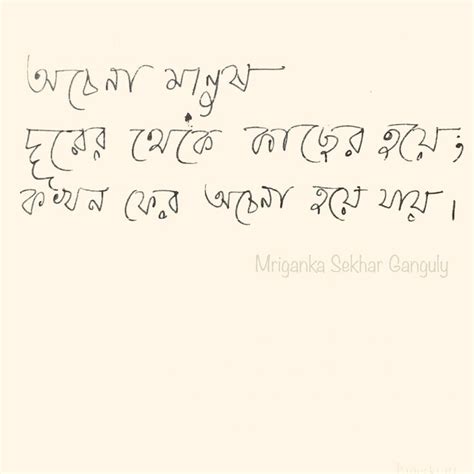 অচেনা মানুষ
দূরের থেকে কাছের হয়ে;
কখন ফের অচেনা হয়ে যায়।
Mriganka Sekhar Ganguly